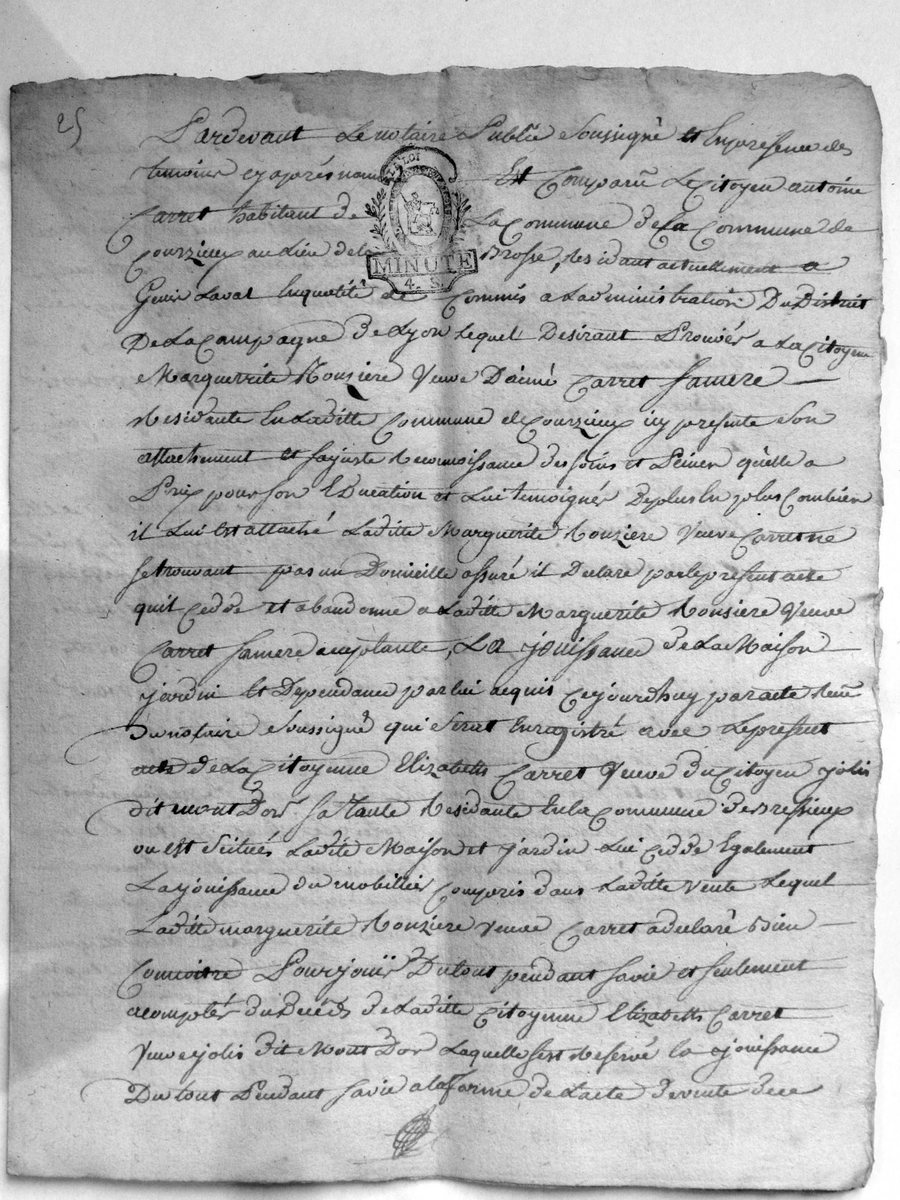 25
Pardevant Le notaire Public Soussigné et En presence des
temoins cy après nommés Est Comparu Le Citoyen antoine
Carret habitant de La Commune de la Commune de
Courzieux au Lieu de la Brosse, residant actuellement a
LA LOI
MINUTE
4. S.
Genis Laval En qualité de Commis a Ladministration Du District
De La Campagne de Lyon Lequel Desirant Prouver a La Citoyenne
Marguerite Ronsiere Veuve Daimé Carret Sa mere
Residante En Laditte Commune de Courzieux icy presente Son
attachement et sa juste Reconnoissance des soins et Peines quelle a
Prix pour son Education et Lui temoigner De plus En plus Combien
il Lui est attaché Laditte Marguerite Ronziere Veuve Carret ne
se trouvant pas un Domicille assuré il Declare par le present acte
quil Cedde et abandonne a Laditte Marguerite Ronsiere Veuve
Carret sa mere acceptante, La jouissance de La Maison
jardin Et Dependance par lui acquis Cejourdhuy par acte Reçu
Du notaire Soussigné qui Serat Enregistré avec Le present
acte de La Citoyenne Elizabeth Carret Veuve du Citoyen jolis
dit mont Dor Sa Tante Residante En la Commune de Bressieux
ou est Scitués Laditte Maison et jardin Lui Cedde Egalement
La jouissance du mobillier Compris dans Laditte Vente Lequel
Laditte marguerite Ronziere Veuve Carret a declaré Bien
Connoitre Pour jouir Du tout pendant sa vie et seulement
a compter du Decés de Laditte Citoyenne Elizabeth Carret
Veuve jolis dit Mont Dor Laquelle sest Reservé la jouissance
Du tout Pendant sa vie a la forme de Lacte de vente de ce